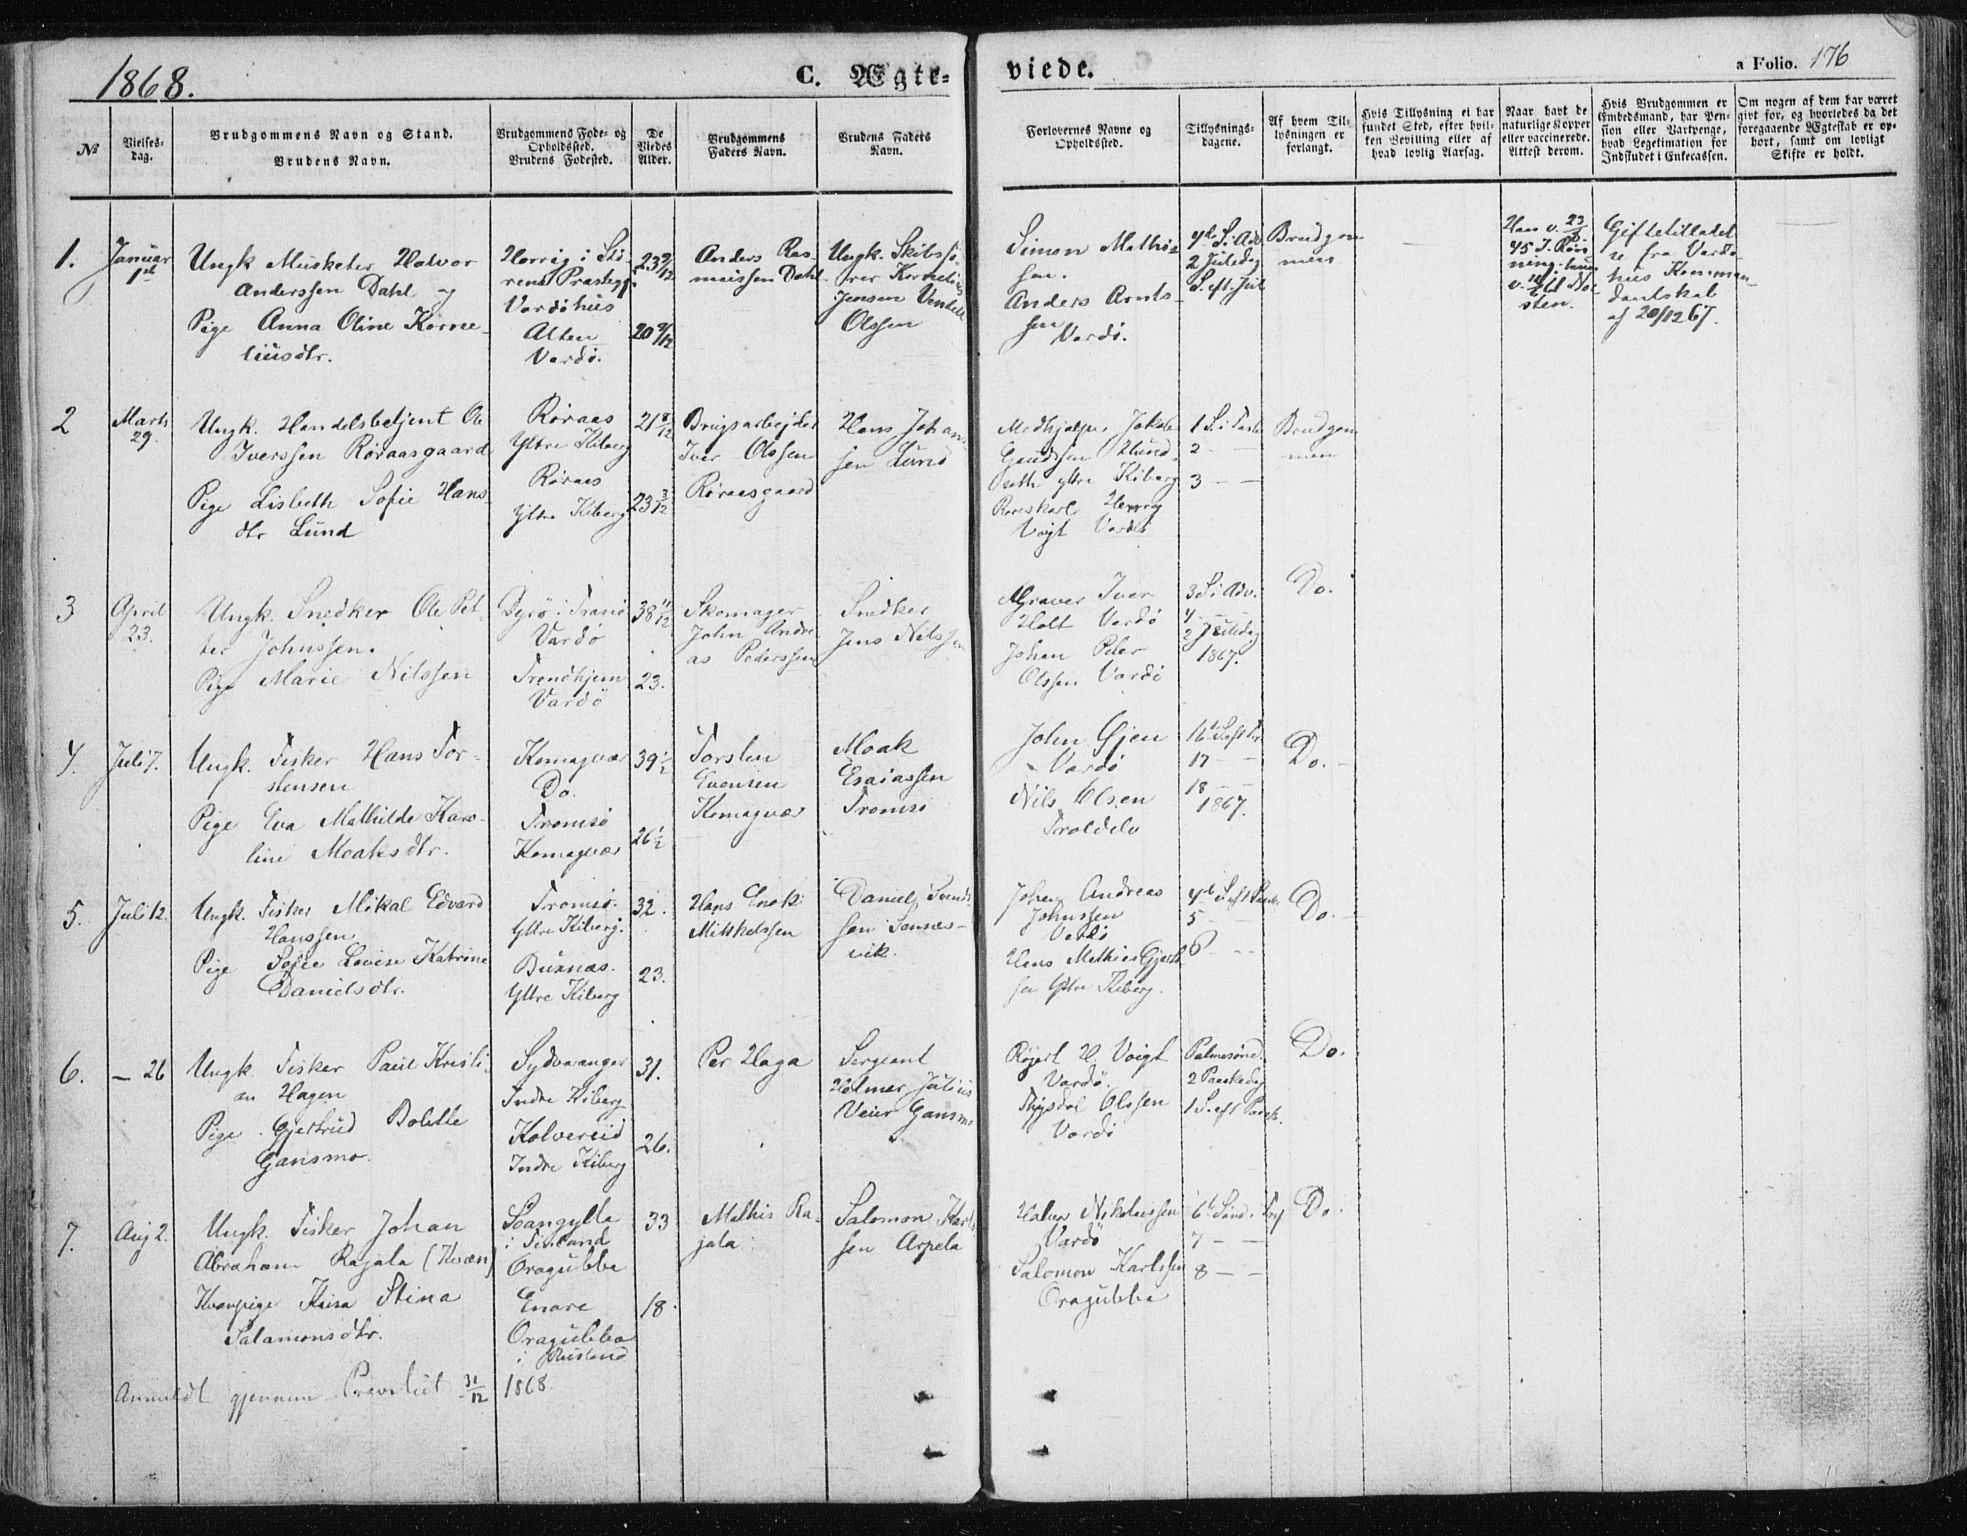 1868.
C. Ægte-
viede.
a Folio. 176
No
Vielses-
dag.
Brudgommens Navn og Stand.
Brudens Navn.
Brudgommens Føde- og
Opholdssted.
Brudens Fødested.
De
Viedes
Alder.
Brudgommens
Faders Navn.
Brudens Faders
Navn.
Forlovernes Navne og
Opholdssted.
Tillysnings-
dagene.
Af hvem Til-
lysningen er
forlangt.
Hvis Tillysning ei har
fundet Sted, efter hvil-
ken Bevilling eller af
hvad lovlig Aarsag.
Naar havt de
naturlige Kopper
eller vaccinerede.
Attest derom.
Hvis Brudgommen er
Embedsmand, har Pen-
sion eller Vartpenge,
hvad Legitimation for
Indskudet i Enkecassen.
Om nogen af dem har været
gift før, og hvorledes da det
foregaaende Ægteskab er op-
hørt, samt om lovligt
Skifte er holdt.
1.
Januar
1st
Ungk Musketer Halvor
Anderssen Dahl og
Pige Anna Oline Korne-
liusdtr.
i Stø-
rens Præstegj.
Vardøhus
Alten
Vardø.
23 9/12
20 9/12
Anders Ras-
mussen Dahl
Ungk. Skibsfø-
rer Kornelius
Jensen
Olssen
Simon Mathis-
sen.
Anders Arnts-
sen
Vardø.
4de S. i Adv
2 Juledag
S. eft. Jul
Brudgom
men
Han v. 23
45 I.
v.
Giftetilladel
se fra Vardø-
hus Komman-
dantskab
af 20/12 67.
2
Marts
29.
Ungk. Handelsbetjent Ole
Iverssen Røraasgaard
Pige Lisbeth Sofie Hans-
dtr Lund
Røraas
Yttre Kiberg
Røraas
Yttre Kiberg
21 8/12
23 3/12
Brugsarbejder
Iver Olssen
Røraasgaard
Hans Johan-
sen Lund
Medhjælper Jakob
Hund-
seth yttre Kiberg
Henrig
Voigt Vardø
1 S. i Faste
2 —
3 — —
Brudgom
men
3
April
23.
Ungk. Snedker Ole Pet-
ter Johnssen.
Pige Marie Nilssen
Dyrø i Tranø
Vardø
Trondhjem
Vardø
38 11/12
23.
Skomager
John Andre-
as Pederssen
Snedker
Jens Nilssen
Graver Iver
Holt Vardø
Johan Peter
Olssen Vardø
3 S. i Adv.
4 — —
2 Juledag
1867.
Do.
4.
Juli 7.
Ungk. Fisker Hans Tor-
stensen
Pige Eva Mathilde Karo-
line Moaksdtr.
Komagvær
Do.
Tromsø
Komagvær
39 1/2
26 1/2
Torsten
Evensen
Komagvær
Moak
Esaiassen
Tromsø
John Gjen
Vardø
Nils Olsen
Troldelv
16de S. eft Tr.
17 — —
18 — —
1867.
Do.
5.
Juli 12.
Ungk. Fisker Mikal Edvard
Hanssen
Pige Sofie Lovise Katrine
Danielsdtr.
Tromsø.
Yttre Kiberg.
Buxnæs.
Yttre Kiberg
32.
23.
Hans Enok
Mikkelssen
Daniel
sen
vik.
Johan Andreas
Johnssen
Vardø
Hans Mathias
sen Yttre Kiberg.
4de S. eft Paaske
5 —
6 — —
Do.
6.
— 26
Ungk. Fisker Paul Kristi-
an Hagen
Pige Gjertrud Bolette
Gansmo.
Sydvaranger
Indre Kiberg
Kolvereid
Indre Kiberg
31.
26.
Per Haga
Sergeant
Holmer Julius
Veier Gansmo
H. Voigt
Vardø.
Olssen
Vardø
Palmesønd.
2 Paaskedag
1 S. eft Paask.
Do.
7.
Aug 2.
Ungk. Fisker Johan
Abraham Rajala (Kvæn)
Kvænpige Kaisa Stina
Salamonsdtr.
Soangylla
i Finland
Oragubba
Enare
Oragubba
i Rusland
33
18.
Mathis Ra-
jala
Salomon Karls-
sen Arpela
Nikolaissen
Vardø
Salomon Karlssen
Oragubba
6te Sønd.
7 — —
8 — —
Do.
Anmeldt gjennem Provstiet 31/12 1868.